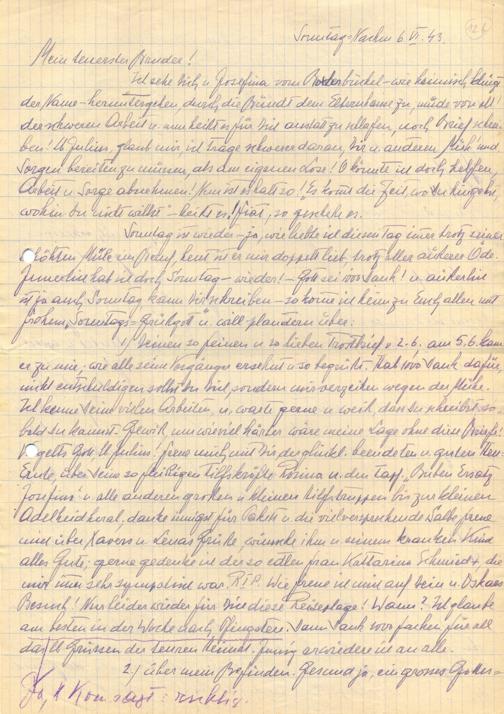 Sonntag=Nachm 6. VI. 43.
Mein teuerster Bruder!
Ich sehe Dich u. Josefina vom - wie komisch klingt
der Name - heruntergehen, durch die dem Elternhause zu, müde von all
der schweren Arbeit u. nun heißt es für Dich anstatt zu schlafen, noch Brief schrei-
ben! O Julius, glaub mir, ich trage schwerer daran, Dir u. anderen Mühe und
Sorgen bereiten zu müssen, als am eigenen Lose! O könnte ich doch helfen,
Arbeit u. Sorge abnehmen! Nun ist es halt so! "Es kommt die Zeit, wo du hingehst,
wohin du nicht willst" - heißt es! Fiat, so geschehe es.
Sonntag ist wieder - ja, wie liebte ich diesen Tag immer trotz seiner
erhöhten Mühe im Beruf, heut ist er mir doppelt lieb trotz aller äußeren Öde.
Innerlich hab ich doch Sonntag - wieder! - Gott sei Dank! u. äußerlich
ist ja auch Sonntag, kann Dir schreiben - so komme ich heim zu Euch allen mit
frohem Sonntags=Grüßgott u. will plaudern über:
1.) Deinen so feinen u. so lieben Trostbrief v. 2.6. am 5.6. kam
er zu mir, wie alle seine Vorgänger ersehnt u. so begrüßt. Hab 1000 Dank dafür,
nicht entschuldigen sollst Du Dich, sondern mir verzeihen wegen der Mühe.
Ich kenne Deine vielen Arbeiten, u. warte gerne u. weiß, dass Du schreibst so-
bald Du kannst. Gewiß um wieviel härter wäre meine Lage ohne diese Briefe!
Vergelts Gott! Julius! freue mich mit Dir der glückl. beendeten u. gutem Heu-
Ernte, über Deine so fleißigen Hilfskräfte Rosina u. den tapf. "Buben Ersatz
Josefine" u. alle anderen großen u. kleinen Hilfstruppen bis zur kleinen
Adelheid hinab, danke innigst für Paket u. die vielversprechende Salbe, freue
mich über Xavers u. Lenas Grüße, wünsche ihm u. seinem kranken Kind
alles Gute; gerne gedenke ich der so edlen Frau Katharina Schmid +, die
mir immer sehr sympatisch war. R.I.P. Wie freue ich mich auf Dein u. Oskars
Besuch! Nur leider wieder für Dich diese Reiseplage! Wann? Ich glaube
am besten in der Woche nach Pfingsten. Dann Dank vor für all
Grüssen der teuren Heimat. erwidere ich an alle.
2.) über mein Befinden. Gesund ja, ein grosses Gottes=